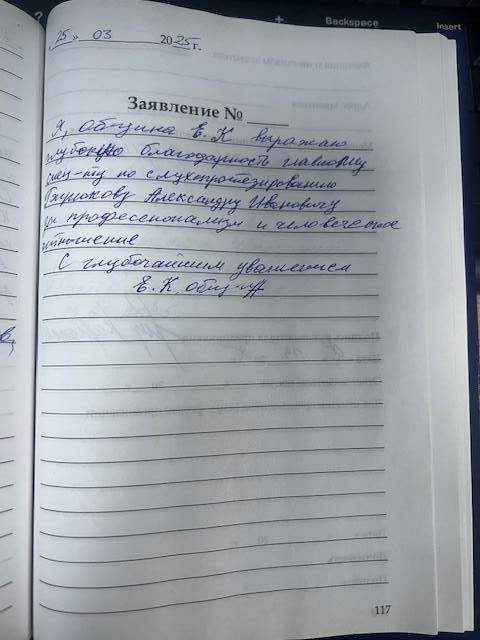 Backspace
Insert
25 » 03 2025 г.
Заявление № ____
Я, община Е.К выражаю
глубокую благодарность главному
спец-ту по слухпротезированию
Александру Ивановичу
за профессионализм и человеческое
отношение
С глубочайшим уважением
Е.К общ-на
117